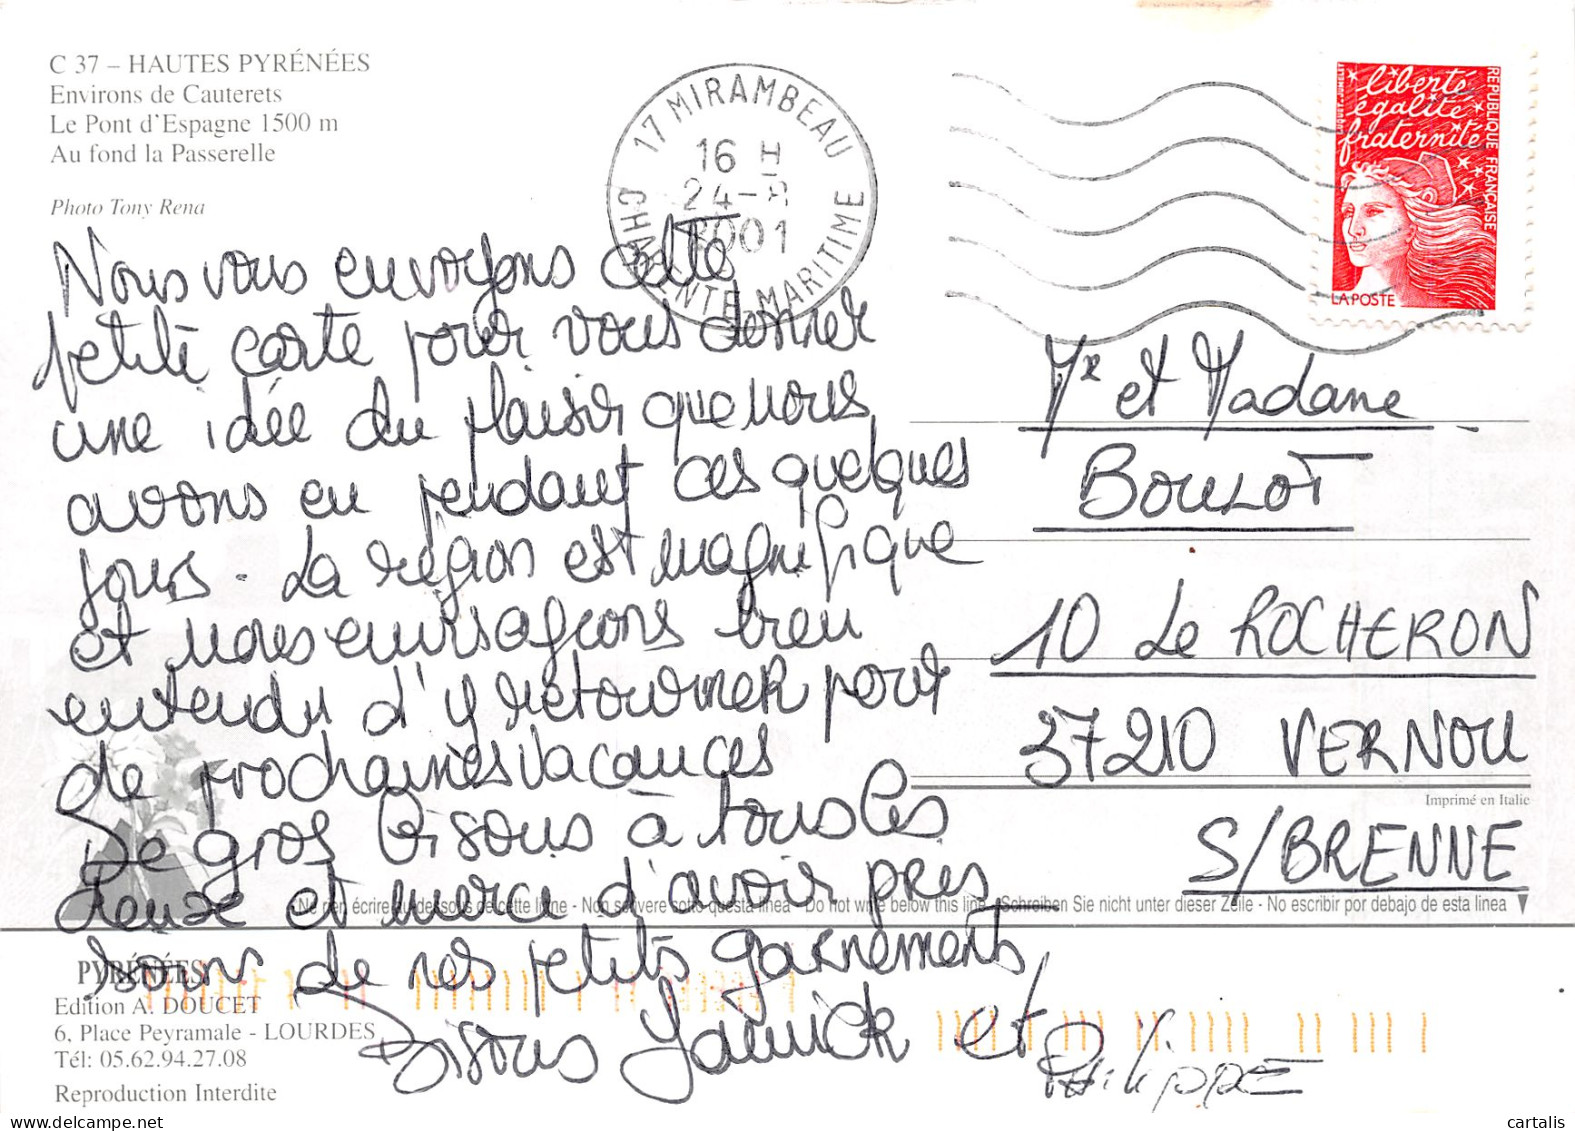 C 37 – HAUTES PYRÉNÉES
Environs de Cauterets
Le Pont d'Espagne 1500 m
Au fond la Passerelle
Photo Tony Rena
17 MIRAMBEAU
16 H
24-8
2001
CHARENTE-MARITIME
liberté
égalité
fraternité
REPUBLIQUE FRANÇAISE
LA POSTE
Nous vous envoyons cette
petite carte pour vous donner
une idée du plaisir que nous
avons eu pendant ces quelques
jours. La région est magnifique
et nous envisageons bien
entendu d'y retourner pour
de prochaines vacances
De gros bisous à tous les
deux et merci d'avoir pris
soin de nos petits garnements,
Bisous Yannick et
Philippe
Mr et Madame
BOULOT
10 Le ROCHERON
37210 VERNOU
S/BRENNE
Imprimé en Italie
Ne rien écrire au-dessous de cette ligne - Non scrivere sotto questa linea - Do not write below this line - Schreiben Sie nicht unter dieser Zeile - No escribir por debajo de esta linea
PYRÉNÉES
Edition A. DOUCET
6, Place Peyramale - LOURDES
Tél: 05.62.94.27.08
Reproduction Interdite
cartalis